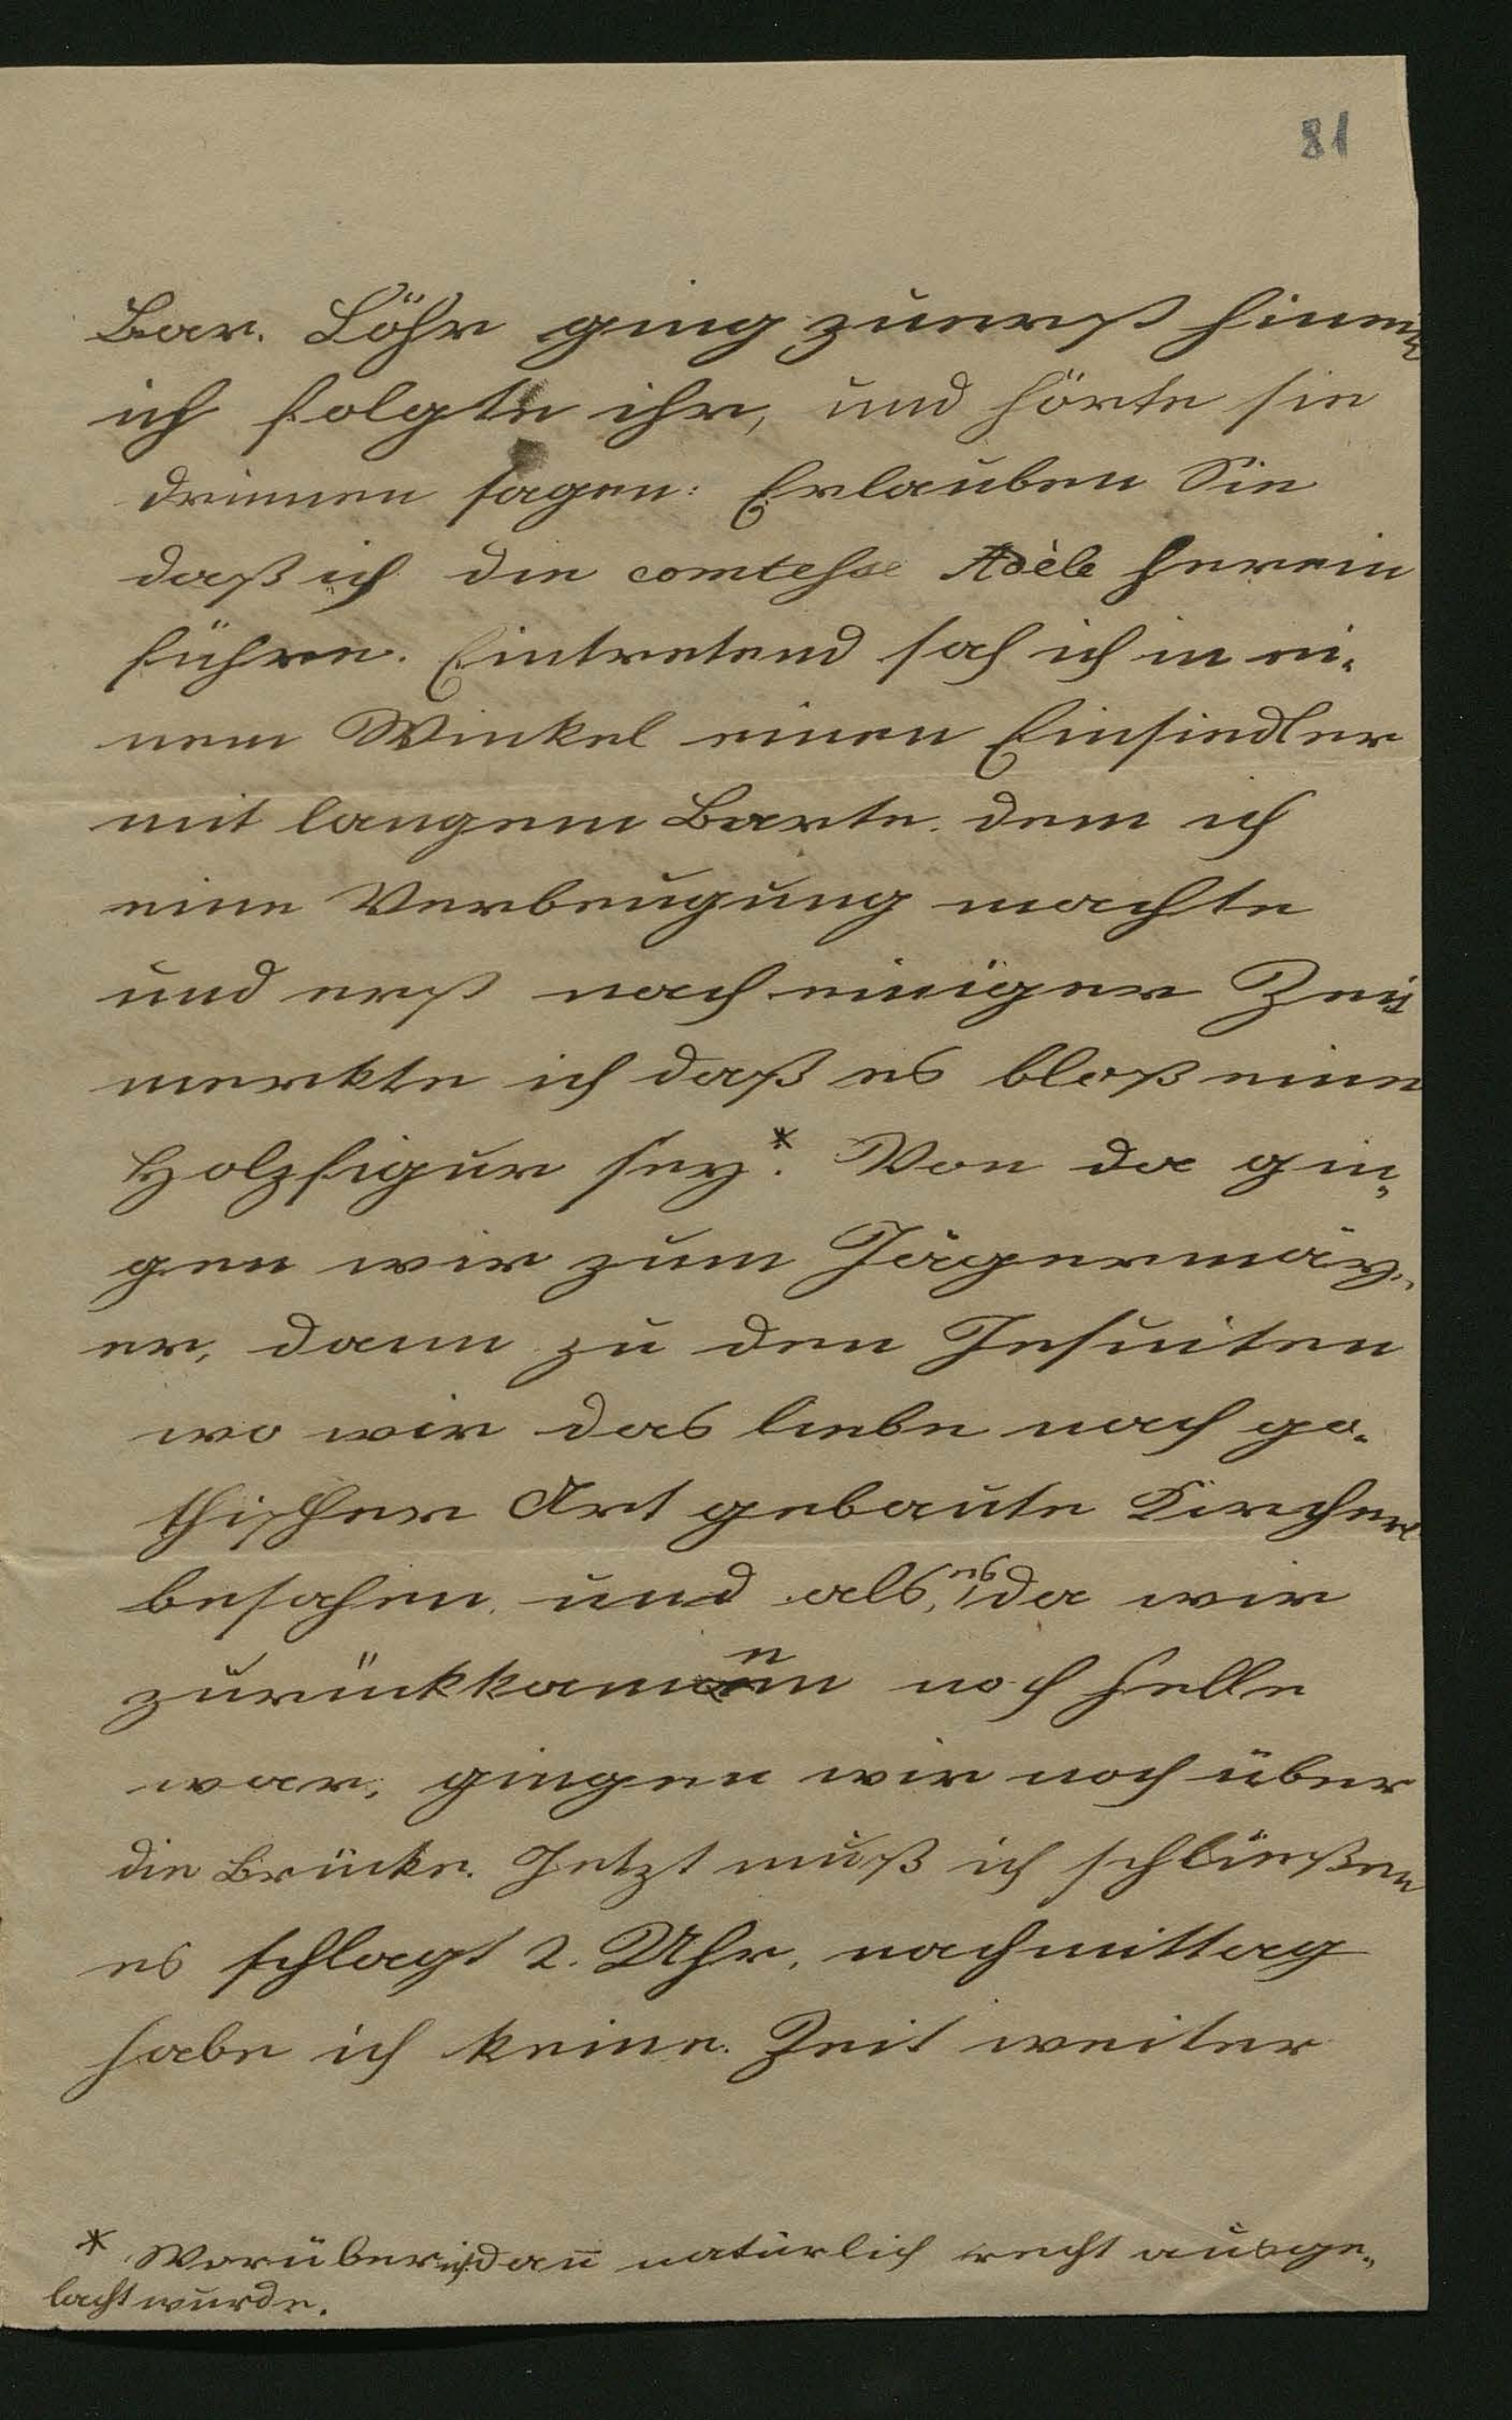 81
Bar. Löhr ging zuerst hinein
ich folgte ihr, und hörte sie
drinnen sagen: Erlauben Sie
daß ich die comtesse Adèle herein
führe. Eintretend sah ich in ei-
nem Winkel einen Einsiedler
mit langem Barte. dem ich
eine Verbeugung machte
und erst nach einiger Zeit
merkte ich daß es bloß eine
Holzfigur sey*. Von da gin-
gen wir zum Jägermay-
er, dann zu den Jesuiten
wo wir das liebe nach go-
thischer Art gebaute Kircherl
besahen, und als, es da wir
zurückkamen noch helle
war, gingen wir noch über
die Brücke. Jetzt muß ich schließen
es schlagt 2. Uhr, nachmittag
habe ich keine Zeit weiter
* Worüber ich dan̄ natürlich recht ausge-
lacht wurde.